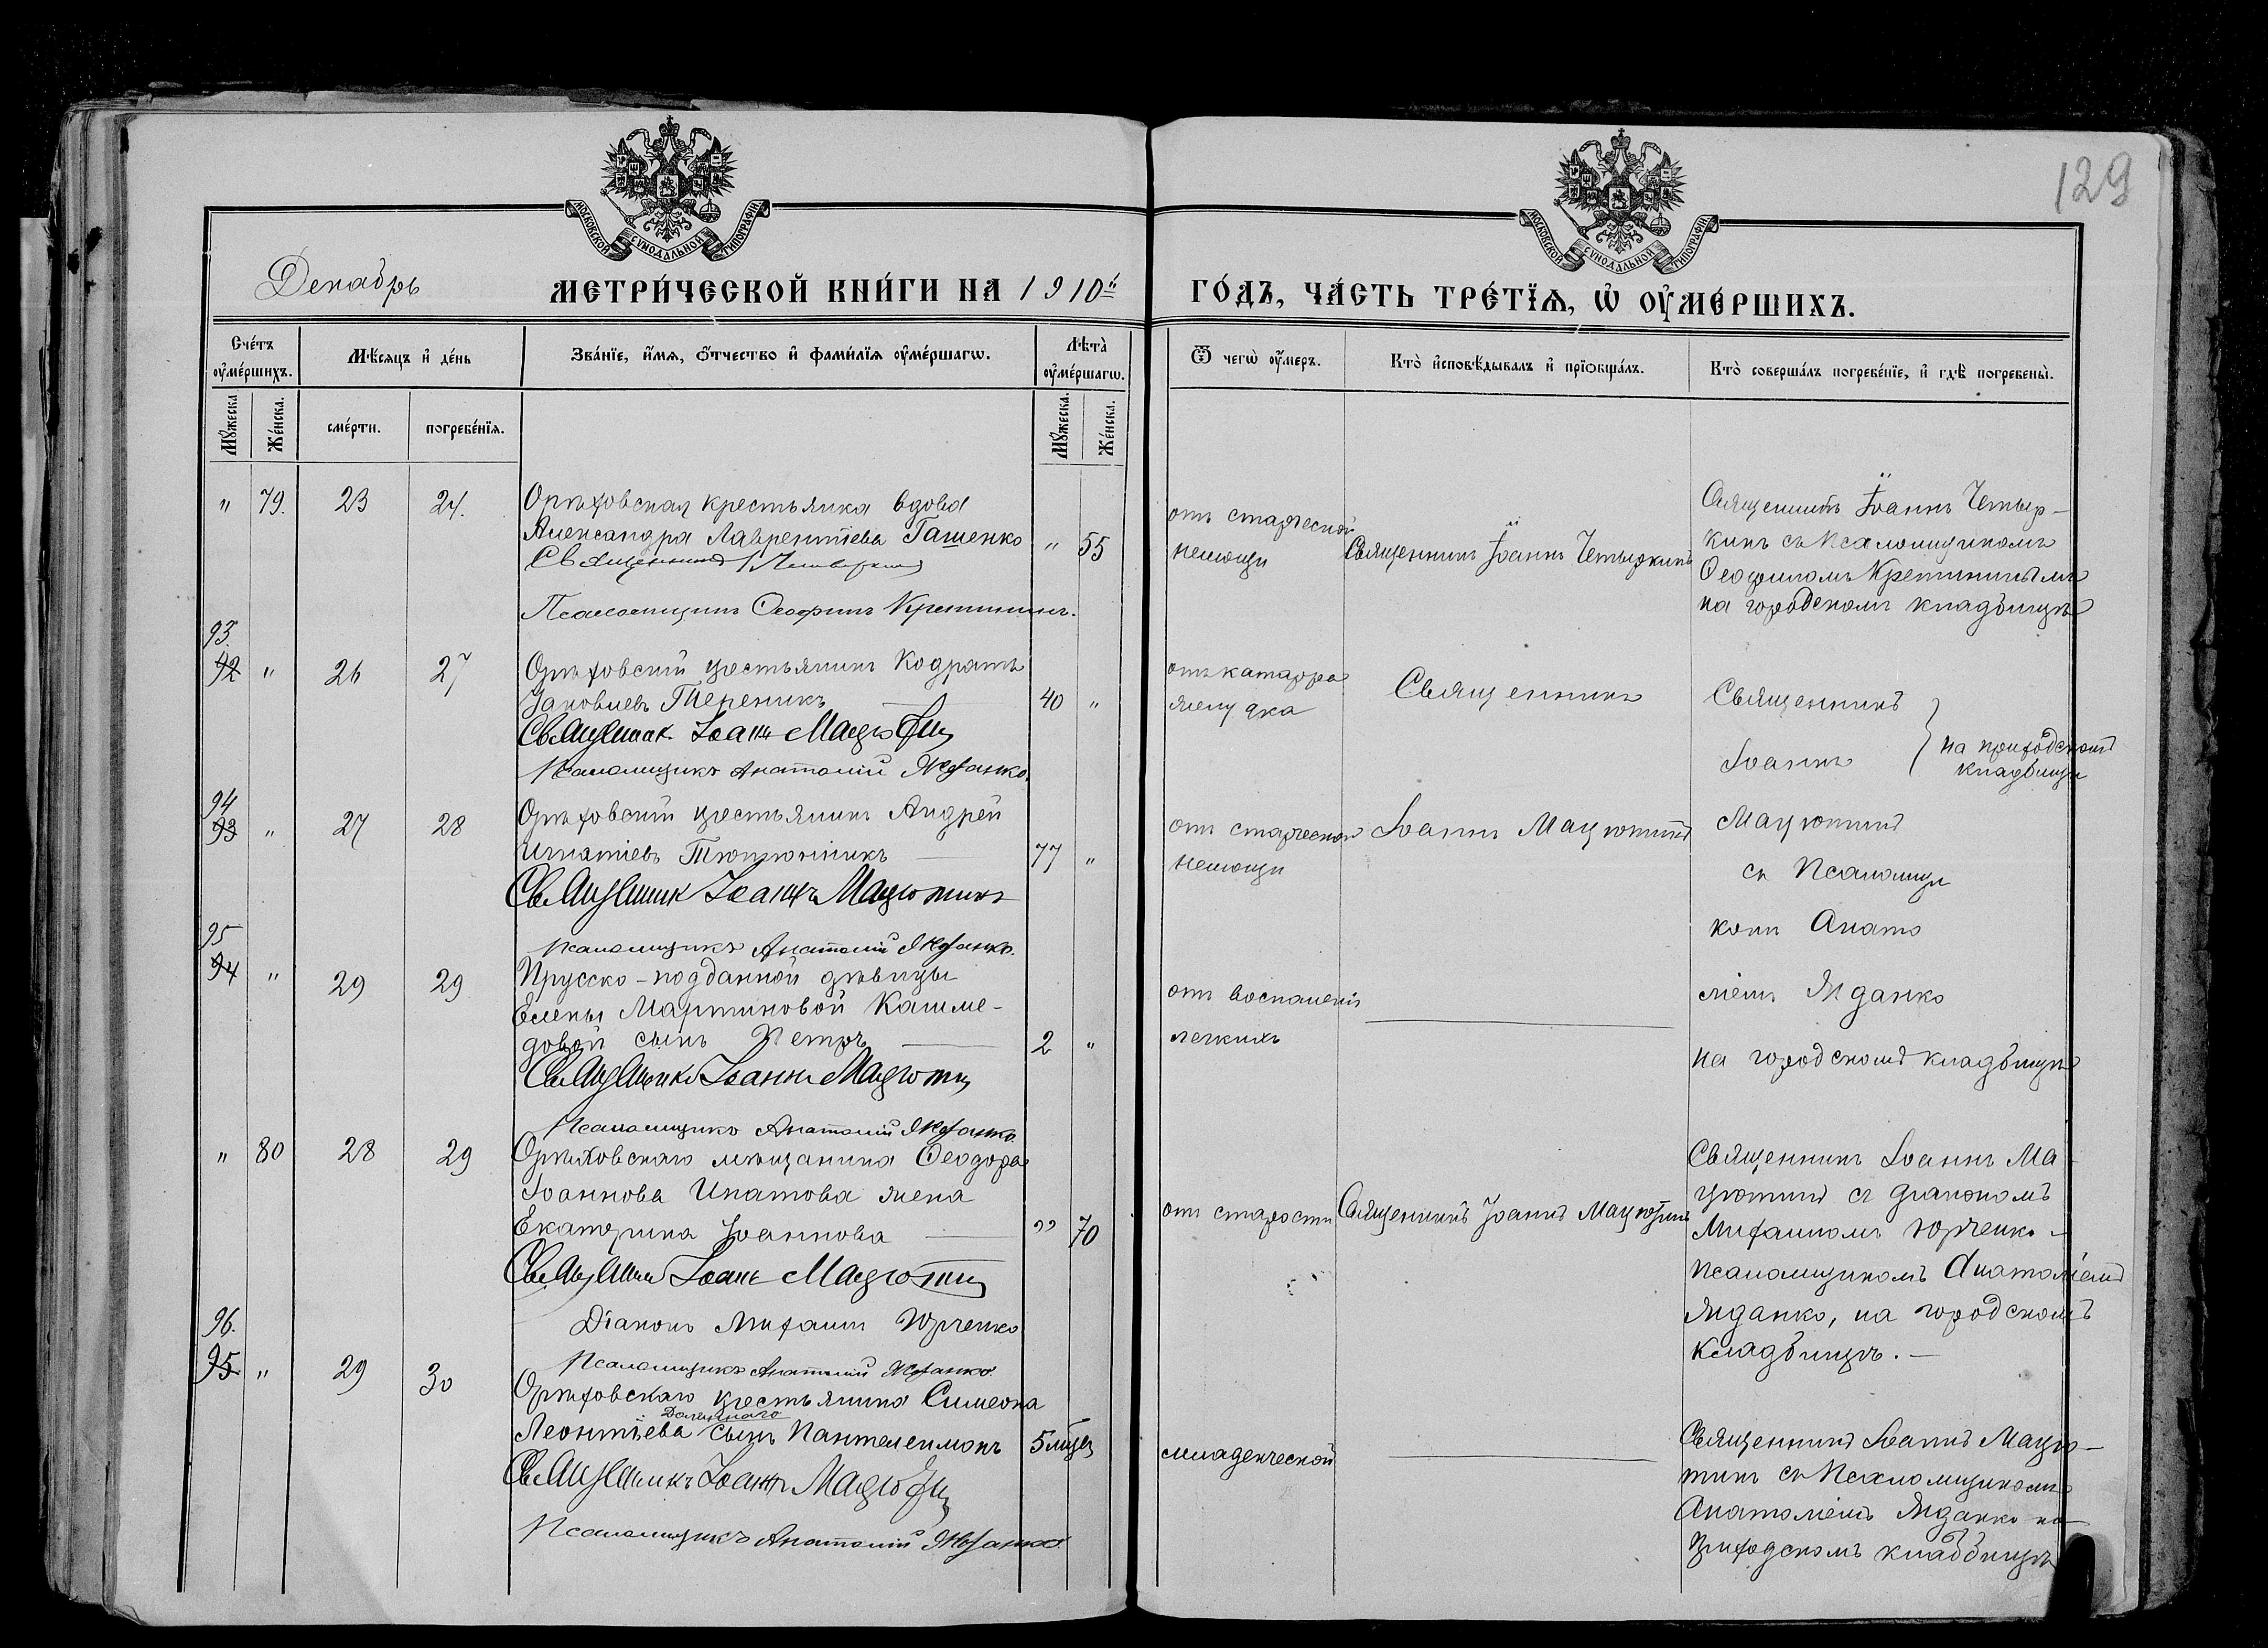 129
МОСКОВСКОЙ СУНОДАЛЬНОЙ ТИПОГРАФІИ
МОСКОВСКОЙ СУНОДАЛЬНОЙ ТИПОГРАФІИ
Декабрь
МЕТРИ́ЧЕСКОЙ КНИ́ГИ НА 1910й
ГО́ДЪ, ЧА́СТЬ ТРЕ́ТІѦ, Ѡ ОУМЕ́РШИХЪ.
Сче́тъ оуме́ршихъ.
Мѣ́сяцъ и де́нь
Зва́нїе, и́мѧ, о́тчество и фами́лїѧ оуме́ршагѡ.
Лѣта̀ оуме́ршагѡ.
Ѿ чегѡ̀ оу́меръ.
Кто̀ исповѣ́дывалъ и прїобща́лъ.
Кто̀ соверша́лъ погребе́нїе, и гдѣ̀ погребены̀.
Му́жеска
Же́нска.
сме́рти.
погребе́нїѧ.
Му́жеска.
Же́нска.
" 79. 23 24.
Орѣховская крестьянка вдова
Александра Лаврентіева Гашенко " 55
Священникъ І Четыркинъ
Псаломщикъ Ѳеофилъ Кретининъ.
отъ старческой
немощи
Священникъ Іоаннъ Четыркинъ
Священникъ Іоаннъ Четыр-
кинъ съ псаломщикомъ
Ѳеофиломъ Кретининымъ
на городскомъ кладбищѣ
93.
92 " 26 27
Орѣховскій крестьянинъ Кодратъ
Іаковлевъ Тереникъ 40 "
Священник Іоанн Мацютин
Псаломщикъ Анатолій Жданко.
отъ катарра
желудка
Священникъ
Священникъ
Іоаннъ
на приходскомъ
кладбищѣ
94
93 " 27 28
Орѣховскій крестьянинъ Андрей
Игнатіевъ Тютюнникъ 77 "
Священник Іоаннъ Мацютинъ
Псаломщикъ Анатолій Жданко.
отъ старческой
немощи
Іоаннъ Мацютинъ
Мацютинъ
съ Псаломщи
комъ Анато
95
94 " 29 29
Прусско-подданной дѣвицы
Елены Мартиновой Кашме-
довой сынъ Петръ 2 "
Священникъ Іоаннъ Мацютин
Псаломщикъ Анатолій Жданко.
отъ воспаленія
легкихъ
ліемъ Жданко
на городскомъ кладбищѣ
" 80 28 29
Орѣховскаго мѣщанина Ѳеодора
Іоаннова Ипатова жена
Екатерина Іоаннова " 70
Священник Іоанн Мацютин
Діаконъ Митафанъ Юрченко
Псаломщикъ Анатолій Жданко.
отъ старости
Священникъ Іоаннъ Мацютинъ
Священникъ Іоаннъ Ма-
цютинъ съ діакономъ
Юрченко
псаломщикомъ Анатоліемъ
Жданко, на городскомъ
кладбищѣ.—
96.
95 " 29 30
Орѣховскаго крестьянина Симеона
Леонтіева Долецкаго сынъ Пантелеимонъ 5 мѣсяц
Священникъ Іоаннъ Мацютин
Псаломщикъ Анатолій Жданко
младенческой
Священникъ Іоаннъ Мацю-
тинъ съ Псаломщикомъ
Анатоліемъ Жданко на
приходскомъ кладбищѣ